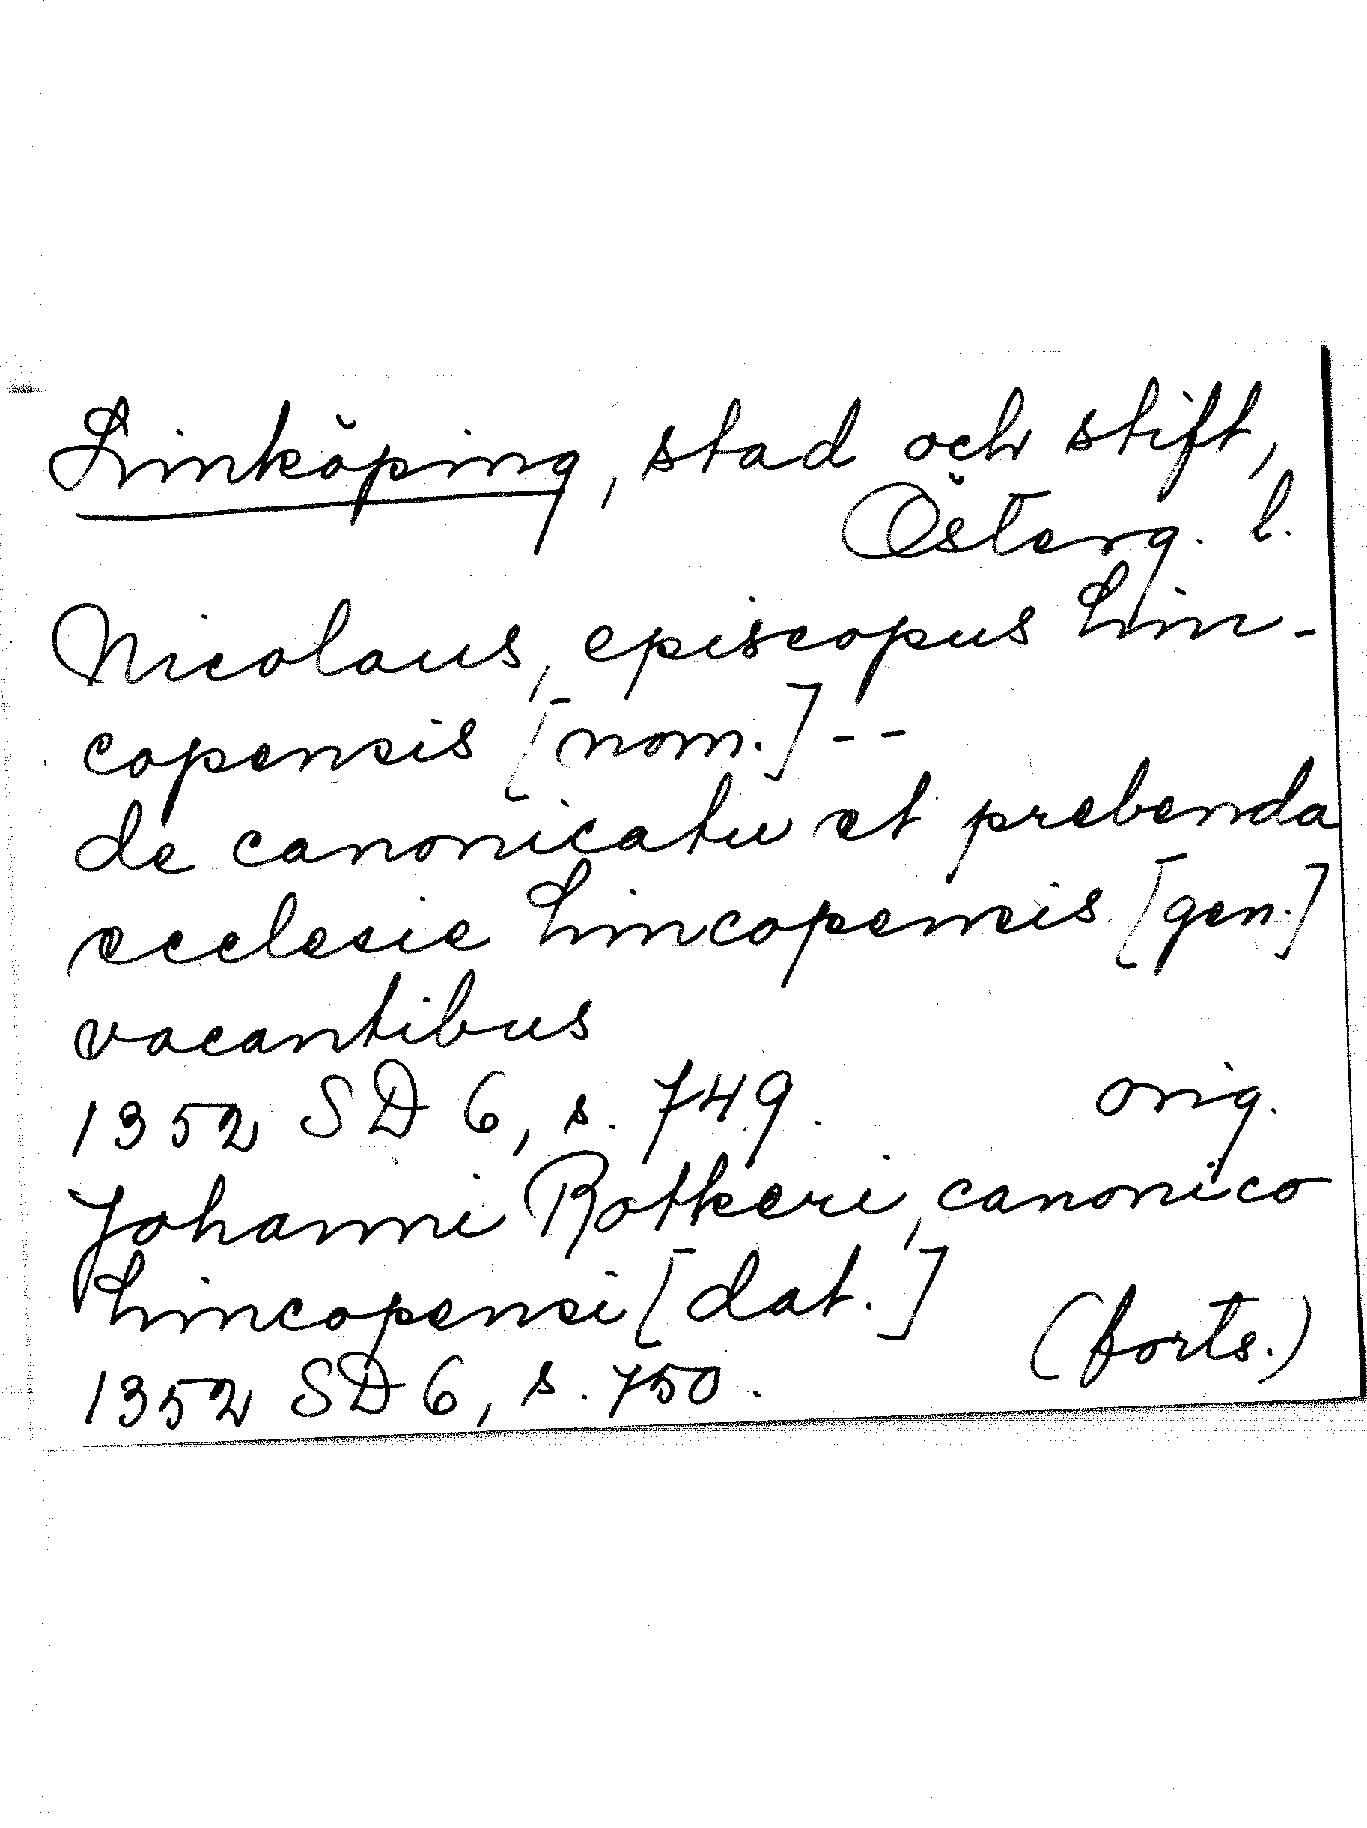 Linköping, stad och stift,
Österg. l.
Nicolaus, episcopus Lin-
copensis [nom.] --
de canonicatu et prebenda
ecclesie Lincopensis [gen.]
vacantibus
1352 SD 6, s. 749. orig.
Johanni Rotkeri, canonico
Lincopensi [dat.]
(forts.)
1352 SD 6, s. 750.